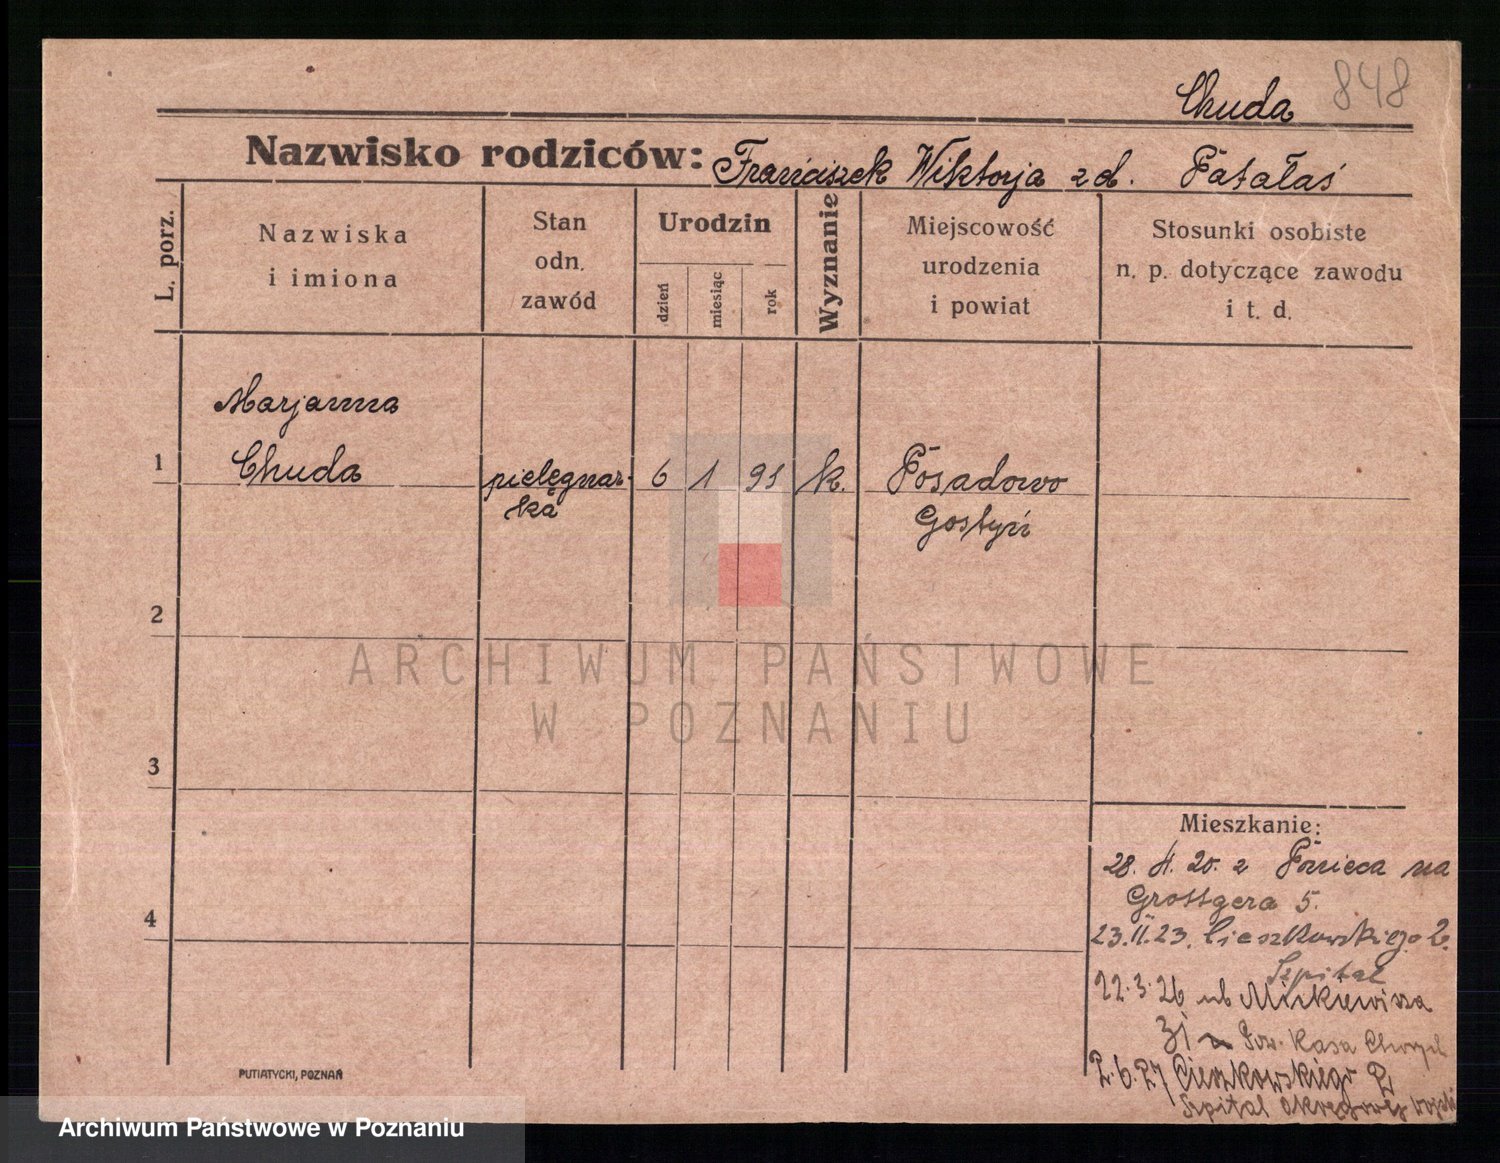 Chuda 848
Nazwisko rodziców: Franciszek Wiktorja z d. Patałaś
L. porz.
Nazwiska
i imiona
Stan
odn.
zawód
Urodzin
dzień
miesiąc
rok
Wyznanie
Miejscowość
urodzenia
i powiat
Stosunki osobiste
n. p. dotyczące zawodu
i t. d.
Marjanna
1 Chuda pielęgniar- 6 1 91 k. Posadowo
ka Gostyń
2
ARCHIWUM PAŃSTWOWE
W POZNANIU
3
Mieszkanie:
28. 20. z na
Grottgera 5.
4
23.II.23. Cieszkowskiego 2.
Szpital
22.3.26 ul Mickiewicza
31 Pow. Kasa Chorych
2.6.27 Cieszkowskiego 2
Szpital Okręgowy
PUTIATYCKI, POZNAŃ
Archiwum Państwowe w Poznaniu